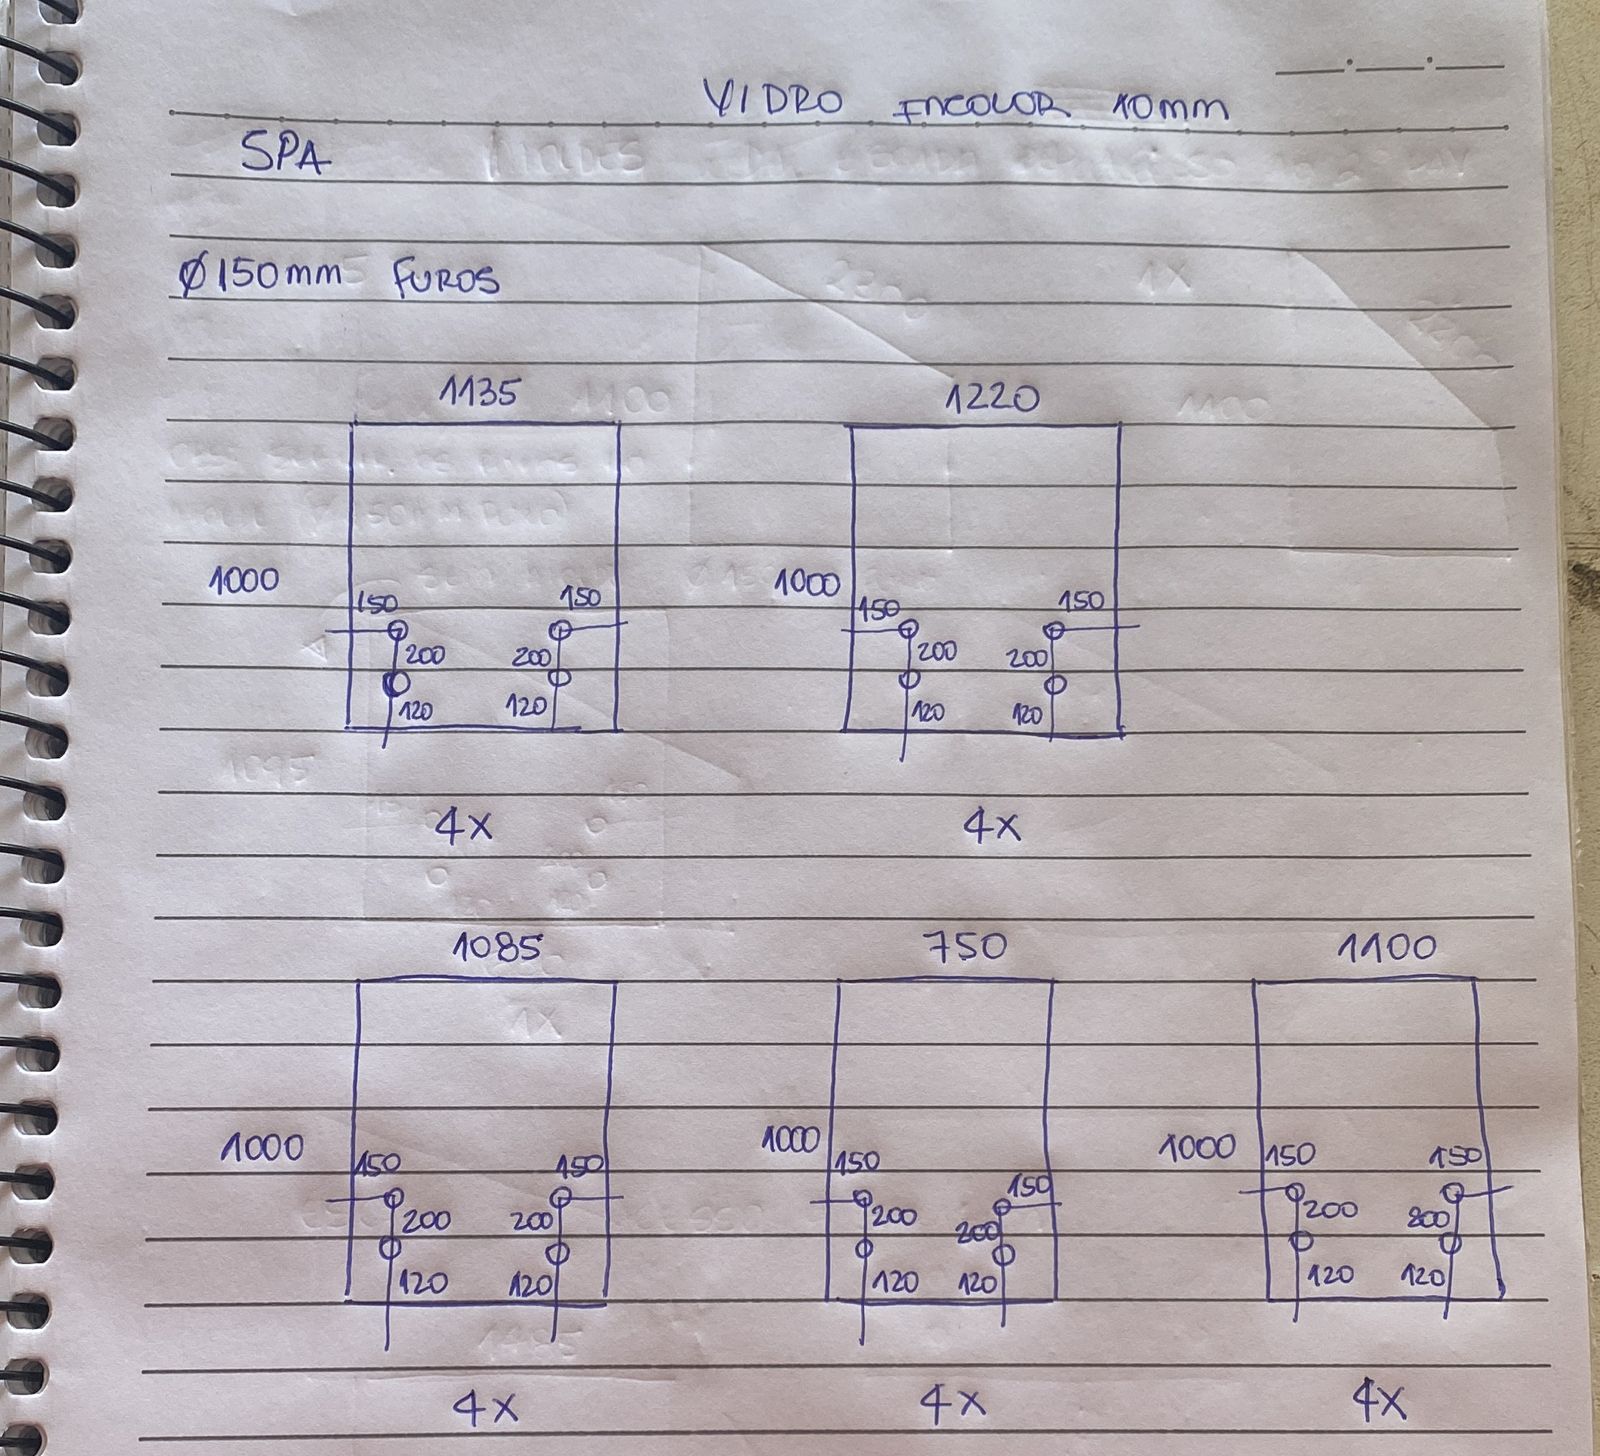 VIDRO INCOLOR 10mm
SPA
Ø150mm FUROS
1135 1220
1000 1000
150 150 150 150
200 200 200 200
120 120 120 120
4x 4x
1085 750 1100
1000 1000 1000
150 150 150 150 150 150
200 200 200 200 200 200
120 120 120 120 120 120
4x 4x 4x